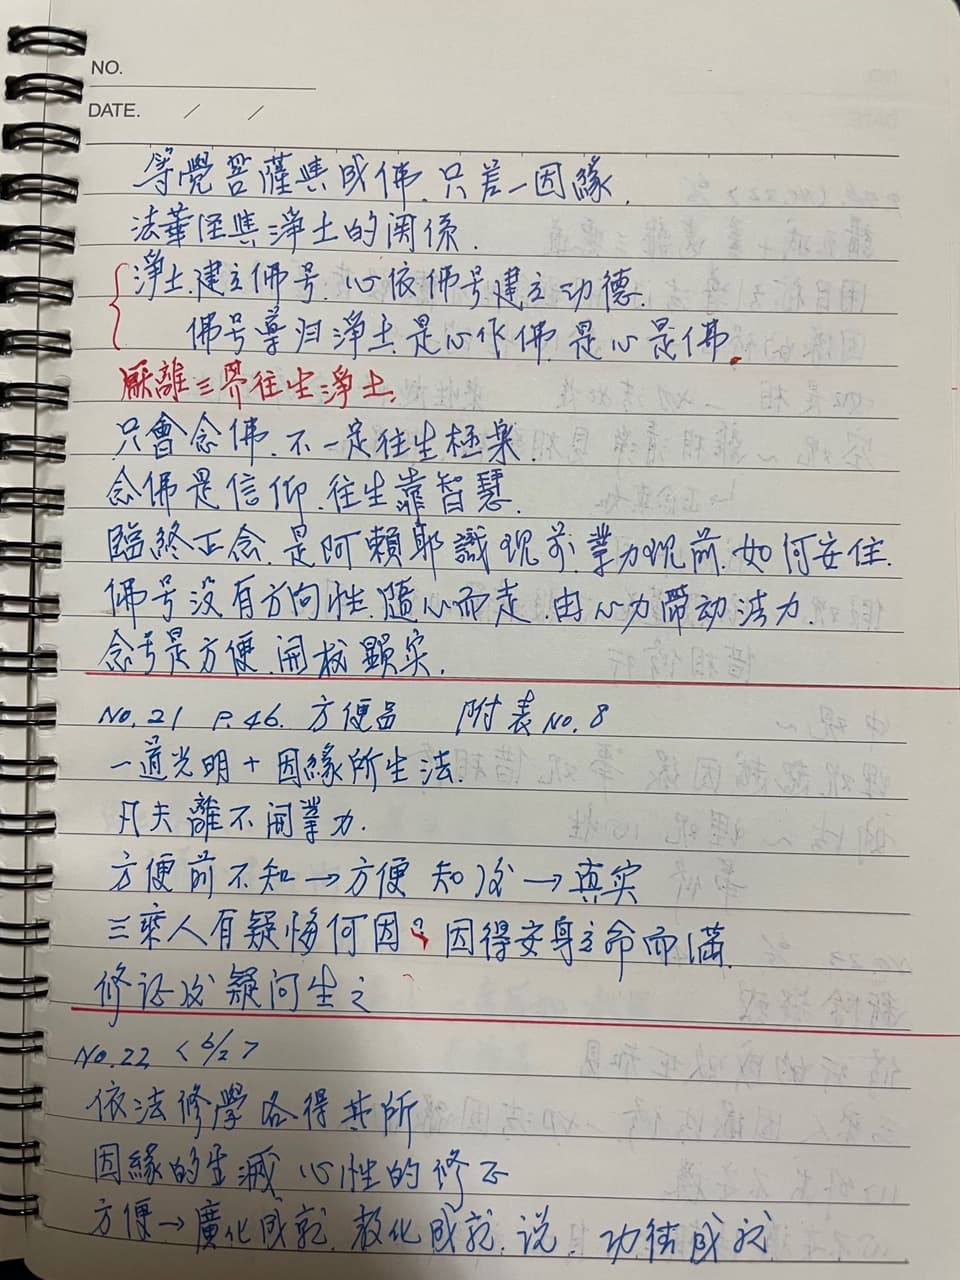 NO.
DATE. / /
等覺菩薩與成佛.只差一因緣.
法華経與淨土的関係.
淨土.建立佛号.心依佛号建立功德.
佛号導归淨土.是心作佛.是心是佛.
厭離三界往生淨土.
只會念佛.不一定往生極楽.
念佛是信仰.往生靠智慧.
臨終正念.是阿賴耶識現前.業力現前.如何安住.
佛号没有方向性.隨心而走.由心力帶动法力.
念号是方便.開权顯实.
No.21 P.46. 方便品 附表No.8
一道光明+因緣所生法.
凡夫離不開業力.
方便前不知→方便知後→真实
三乘人有疑悔何因?因得安身立命而滿.
修证後疑问生之
No.22 <6/2>
依法修學各得其所
因緣的生滅 心性的修正
方便→廣化成就.教化成就.说.功德成就